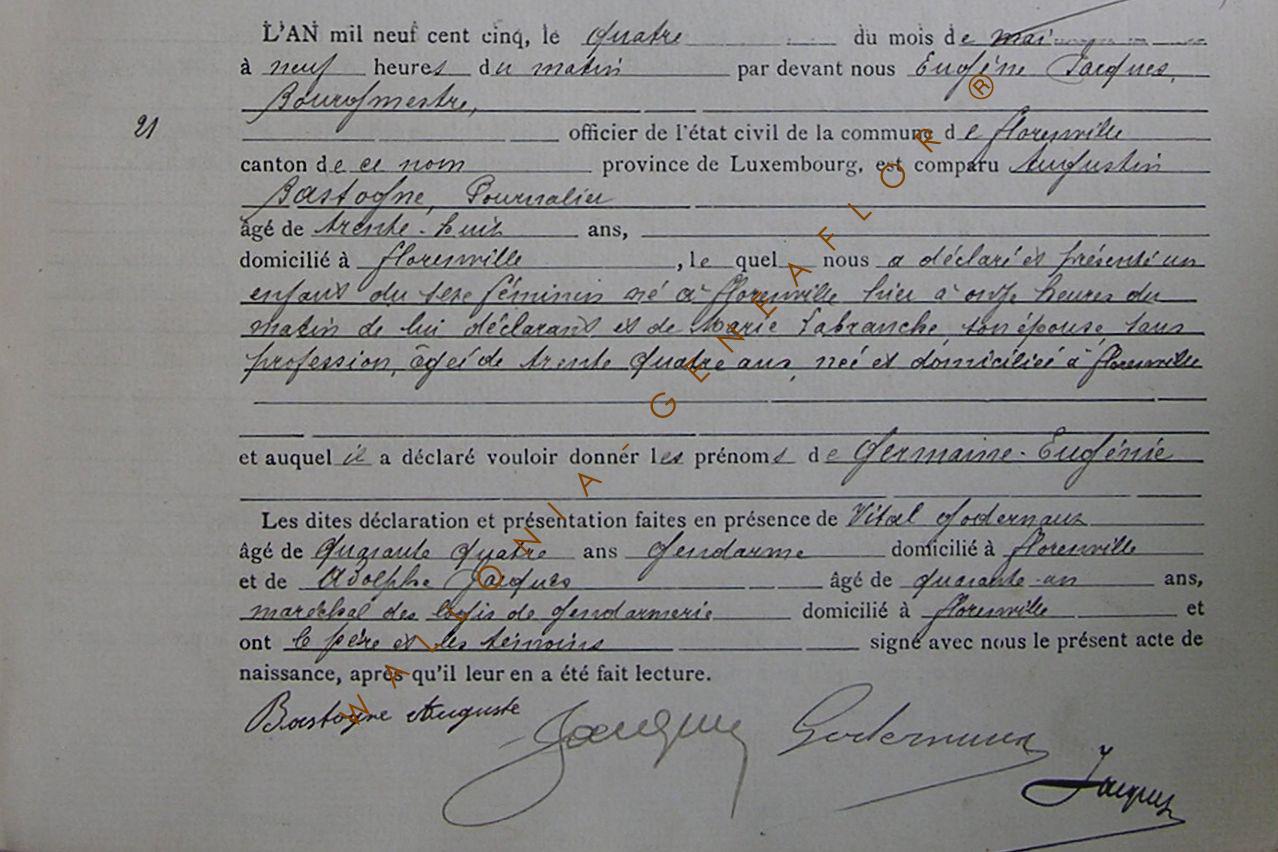 L'AN mil neuf cent cinq, le quatre du mois de mai
à neuf heures du matin par devant nous Eugène Jacques,
Bourgmestre,
21 officier de l'état civil de la commune de Florenville
canton de ce nom province de Luxembourg, est comparu Augustin
Bastogne, Journalier
âgé de trente-huit ans,
domicilié à Florenville, le quel nous a déclaré et présenté un
enfant du sexe féminin né à Florenville hier à onze heures du
matin de lui déclarant et de Marie Labranche, son épouse, sans
profession, âgée de trente quatre ans, née et domiciliée à Florenville
et auquel il a déclaré vouloir donner les prénoms de Germaine-Eugénie
Les dites déclaration et présentation faites en présence de Vital Godernaux
âgé de quarante quatre ans Gendarme domicilié à Florenville
et de Adolphe Jacques âgé de quarante-un ans,
maréchal des logis de gendarmerie domicilié à Florenville et
ont le père et les témoins signé avec nous le présent acte de
naissance, après qu'il leur en a été fait lecture.
Bastogne Auguste Jacques Godernaux
Jacques
WALLONIA-GENEAFLOR ®